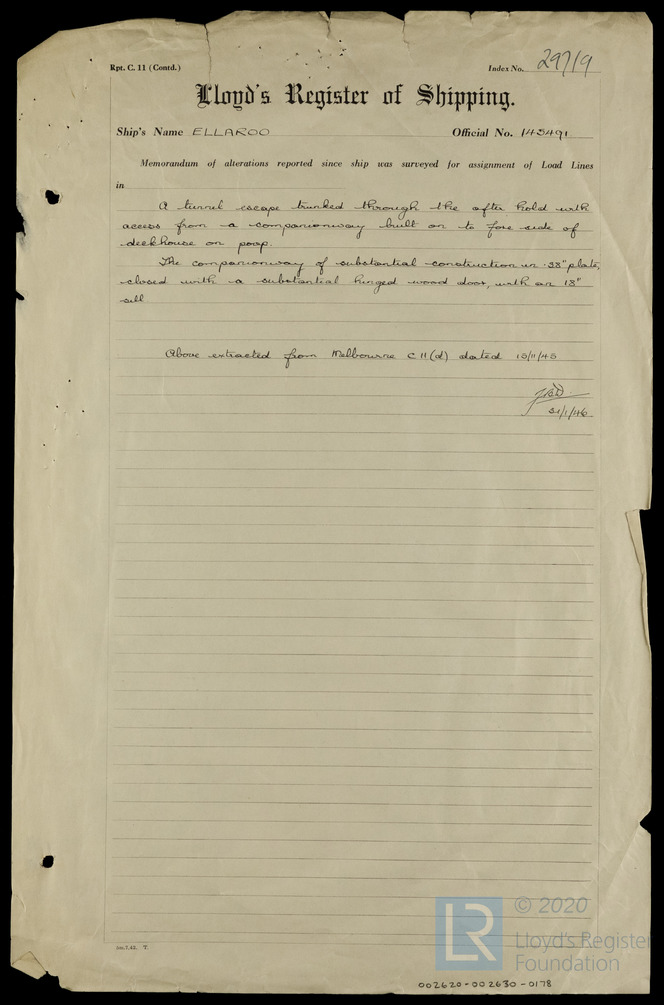 Rpt. C. 11 (Contd.)
Index No. 29719
Lloyd's Register of Shipping.
Ship's Name ELLAROO Official No. 143491
Memorandum of alterations reported since ship was surveyed for assignment of Load Lines
in
A tunnel escape trunked through the after hold with
access from a companionway built on to fore side of
deckhouse on poop.
The companionway of substantial construction in .38" plate,
closed with a substantial hinged wood door, with an 18"
sill
Above extracted from Melbourne C 11 (d) dated 15/11/45
31/1/46
3m.7.42. T.
© 2020
LR
Lloyd's Register
Foundation
002620-002630-0178